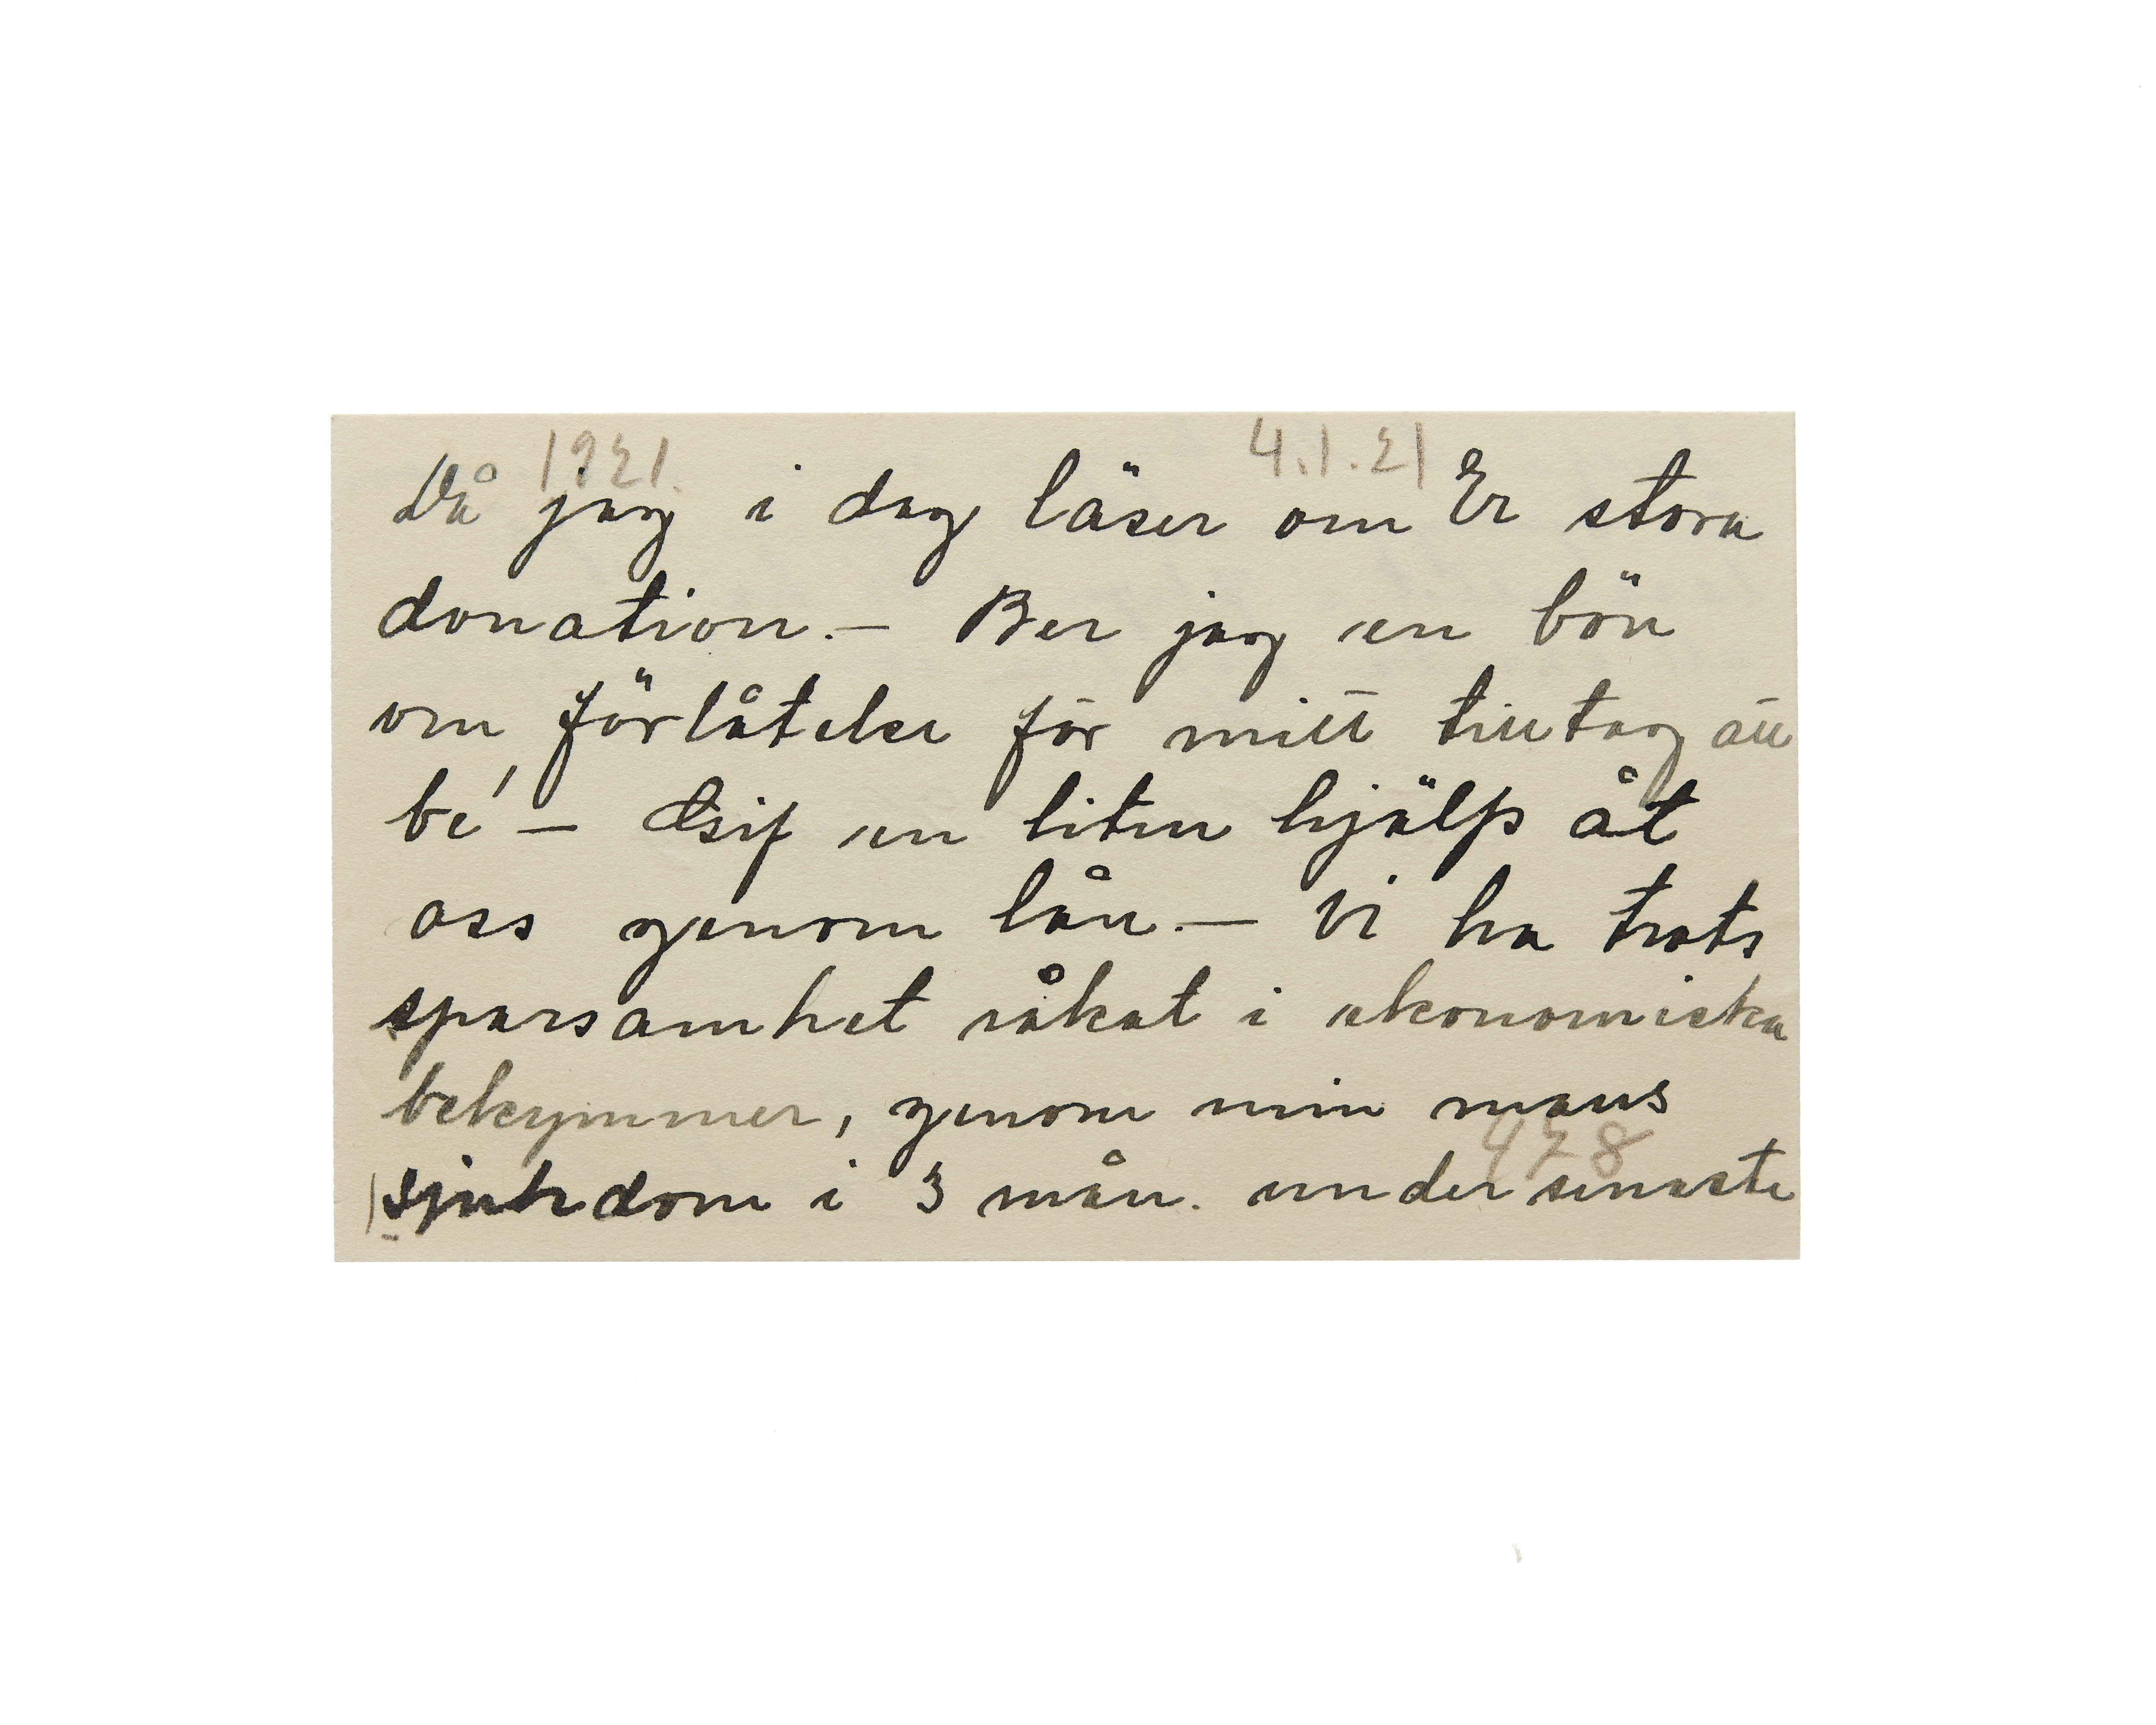 1921. 4.1.21
Då jag i dag läser om Er stora
donation. — Ber jag en bön
om förlåtelse för mitt tilltag att
bé — Gif en liten hjälp åt
oss genom lån. — Vi ha trots
sparsamhet råkat i ekonomiska
bekymmer, genom min mans
478
sjukdom i 3 mån. under senaste